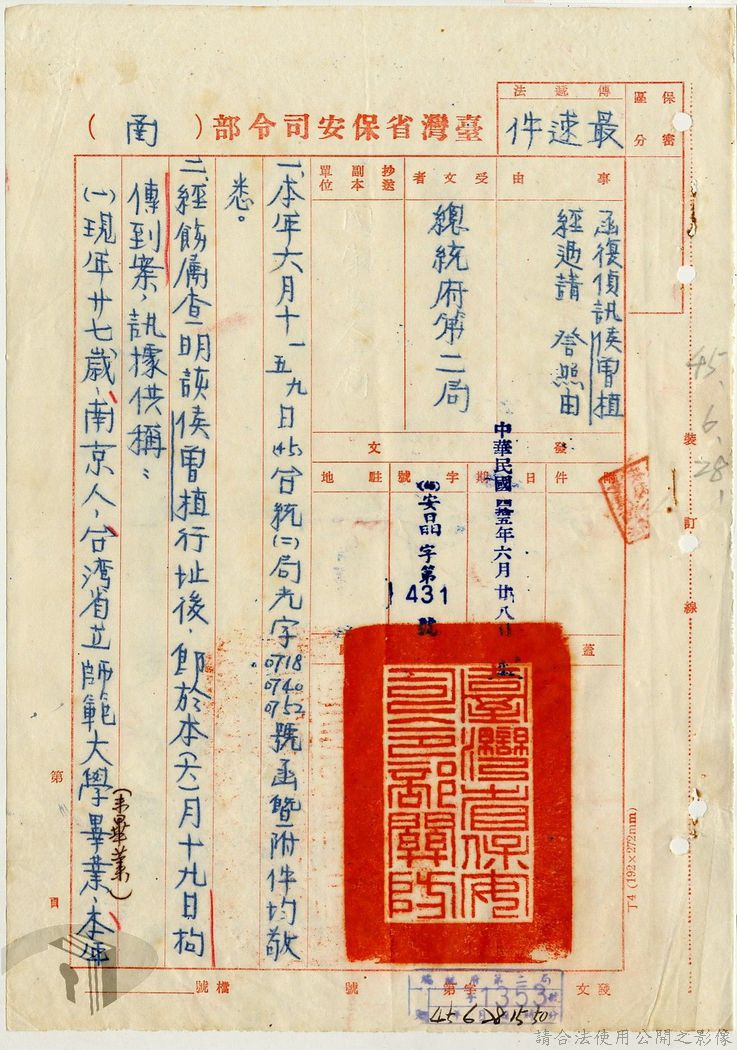 臺灣省保安司令部（函）
保密區分
傳遞法
最速件
事由
函復偵訊侯曾植
經過請詧照由
受文者
總統府第二局
抄送副本單位
發文
附件
日期
字號
駐地
中華民國四拾五年六月廿八日
(45)安晶字第
1431
號
蓋
臺灣省保安司令部關防
一、本年六月十一、十五、九日45台統(二)局光字0718 0740 0752號函暨附件均敬
悉。
二、經飭屬查明該侯曾植行址後，即於本(六)月十九日拘
傳到案，訊據供稱：
(一)現年廿七歲，南京人，台湾省立師範大學畢業(未畢業)，本年
45.6.28.
裝訂線
T4（192×272mm）
第
頁
發文
字第
號
檔號
總統府第二局
1353
請合法使用公開之影像